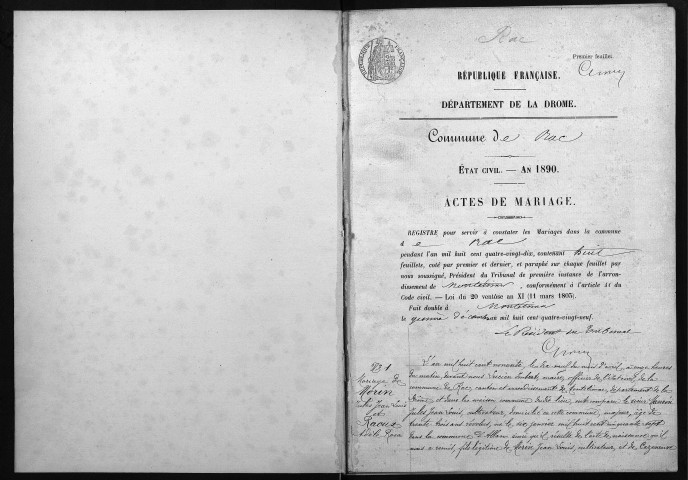 Rac
Premier feuillet.
RÉPUBLIQUE FRANÇAISE.
DÉPARTEMENT DE LA DROME.
Commune de Rac
ÉTAT CIVIL. — AN 1890.
ACTES DE MARIAGE.
REGISTRE pour servir à constater les Mariages dans la commune
de Rac
pendant l'an mil huit cent quatre-vingt-dix, contenant huit
feuillets, coté par premier et dernier, et paraphé sur chaque feuillet par
nous soussigné, Président du Tribunal de première instance de l'arron-
dissement de Montélimar, conformément à l'article 41 du
Code civil. — Loi du 20 ventôse an XI (11 mars 1803).
Fait double à Montélimar
le quinze décembre mil huit cent quatre-vingt-neuf.
Le Président du Tribunal
N° 1
Mariage de
Morin
Jules Jean Louis
et
Raoux
L'an mil huit cent nonante, le dix neuf du mois d'avril, à onze heures
du matin, devant nous Lucien maire, officier de l'état civil de la
commune de Rac, canton et arrondissement de Montélimar, département de la
Drôme et dans la maison commune dudit lieu, ont comparu le sieur Morin
Jules Jean Louis, cultivateur, domicilié en cette commune, majeur, âgé de
trente trois ans révolus, né le six janvier mil huit cent cinquante sept
dans la commune d'Allan ainsi qu'il résulte de l'acte de naissance qu'il
nous a remis, fils légitime de Morin Jean Louis, cultivateur, et de